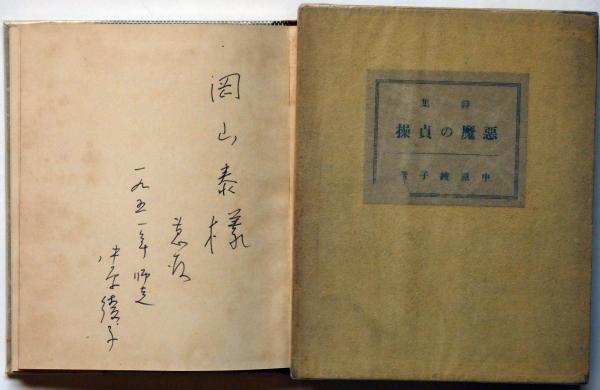 岡山泰様
恵存
一九五一年師走
中原綾子
詩集
悪魔の貞操
中原綾子著